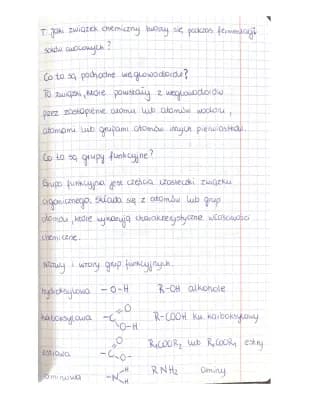 T: Jaki związek chemiczny tworzy się podczas fermentacji
soków owocowych?
Co to są pochodne węglowodorów?
To związki, które powstały z węglowodorów
przez zastąpienie atomu lub atomów wodoru,
atomami lub grupami atomów innych pierwiastków.
Co to są grupy funkcyjne?
Grupa funkcyjna jest częścią cząsteczki związku
organicznego, składa się z atomów lub grup
atomów, które wykazują charakterystyczne właściwości
chemiczne.
i wzory grup funkcyjnych.
hydroksylowa -O-H R-OH alkohole
karboksylowa -C=O O-H R-COOH kw. karboksylowy
estrowa -C=O O- R₁COOR₂ lub R₂COOR₁ estry
aminowa -N-H H RNH₂ aminy